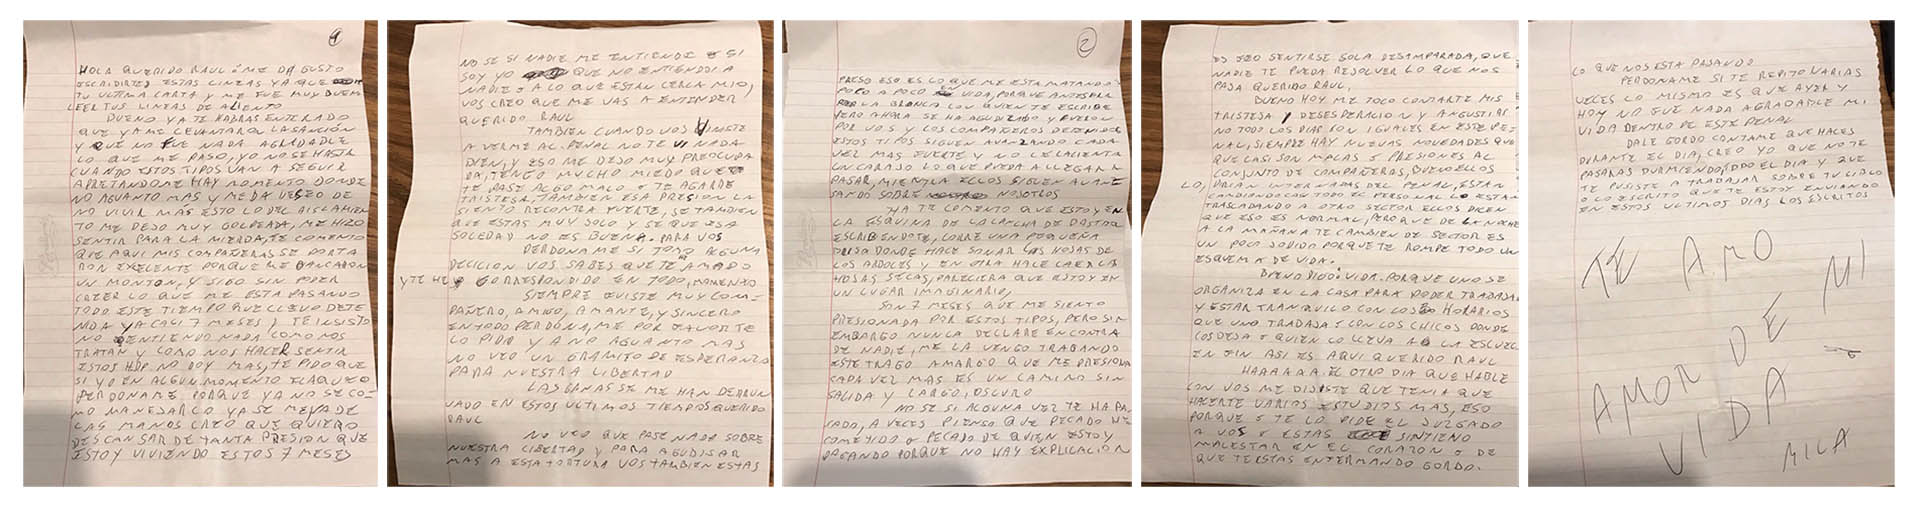 1
HOLA QUERIDO RAUL: ME DA GUSTO
ESCRIBIRTE ESTAS LINEAS YA QUE
TU ULTIMA CARTA Y ME FUE MUY BUEN
LEER TUS LINEAS DE ALIENTO
BUENO YA TE HABRAS ENTERADO
QUE YA ME LEVANTARON LA SANCIÓN
Y QUE NO FUE NADA AGRADABLE
LO QUE ME PASO, YO NO SE HASTA
CUANDO ESTOS TIPOS VAN A SEGUIR
APRETANDOME HAY MOMENTO DONDE
NO AGUANTO MAS Y ME DA DESEO DE
NO VIVIR MAS ESTO LO DEL AISLAMIEN
TO ME DEJO MUY GOLPEADA, ME HIZO
SENTIR PARA LA MIERDA, TE COMENTO
QUE AQUI MIS COMPAÑERAS SE PORTA
RON EXCELENTE PORQUE ME BANCARON
UN MONTON, Y SIGO SIN PODER
CREER LO QUE ME ESTA PASANDO
TODO ESTE TIEMPO QUE LLEVO DETE
NIDA YA CASI 7 MESES Y TE INSISTO
NO ENTIENDO NADA COMO NOS
TRATAN Y COMO NOS HACER SENTIR
ESTOS HDP NO DOY MAS, TE PIDO QUE
SI YO EN ALGUN MOMENTO FLAQUEO
PERDONAME PORQUE YA NO SE CO-
MO MANEJARLO YA SE ME VA DE
LAS MANOS CREO QUE QUIERO
DESCANSAR DE TANTA PRESION QUE
ESTOY VIVIENDO ESTOS 7 MESES
NO SE SI NADIE ME ENTIENDE O SI
SOY YO QUE NO ENTIENDO A
NADIE O A LO QUE ESTAN CERCA MIO,
VOS CREO QUE ME VAS A ENTENDER
QUERIDO RAUL
TAMBIEN CUANDO VOS VINISTE
A VERME AL PENAL NO TE VI NADA
BIEN, Y ESO ME DEJO MUY PREOCUPA
DA, TENGO MUCHO MIEDO QUE
TE PASE ALGO MALO O TE AGARRE
TRISTESA, TAMBIEN ESA PRESION LA
SIENTO RECONTRA FUERTE, SE TAMBIEN
QUE ESTAS MUY SOLO Y SE QUE ESA
SOLEDAD NO ES BUENA PARA VOS
PERDONAME SI TOMO ALGUNA
DECICION VOS SABES QUE TE AMADO
Y TE HE CORRESPONDIDO EN TODO, MOMENTO
SIEMPRE FUISTE MUY COM-
PAÑERO, AMIGO, AMANTE, Y SINCERO
EN TODO PERDONA, ME POR FAVOR TE
LO PIDO YA NO AGUANTO MAS
NO VEO UN GRAMITO DE ESPERANZA
PARA NUESTRA LIBERTAD
LAS GANAS SE ME HAN DERRUM
VADO EN ESTOS ULTIMOS TIEMPOS QUERIDO
RAUL
NO VEO QUE PASE NADA SOBRE
NUESTRA LIBERTAD, Y PARA AGUDISAR
MAS A ESTA TORTURA VOS TAMBIEN ESTAS
2
PRESO ESO ES LO QUE ME ESTA MATANDO
POCO A POCO EN VIDA, PORQUE ANTES ERA
LA BRONCA CON QUIEN TE ESCRIBE
PERO AHORA SE HA AGUDIZADO Y FUERON
POR VOS Y LOS COMPAÑEROS DETENIDOS
ESTOS TIPOS SIGUEN AVANZANDO CADA
VEZ MAS FUERTE Y NO LE CALIENTA
UN CARAJO LO QUE PUEDA LLEGAR A
PASAR, MIENTRA ELLOS SIGUEN AVAN
SANDO SOBRE NOSOTROS
HA TE COMENTO QUE ESTOY EN
LA ESQUINA DE LA CANCHA DE PASTO
ESCRIBIENDOTE, CORRE UNA PEQUEÑA
BRISA DONDE HACE SONAR LAS HOJAS DE
LOS ARBOLES Y EN OTRA HACE CAER LA
HOJAS SECAS, PARECIERA QUE ESTOY EN
UN LUGAR IMAGINARIO,
SON 7 MESES QUE ME SIENTO
PRESIONADA POR ESTOS TIPOS, PERO SIN
EMBARGO NUNCA DECLARE EN CONTRA
DE NADIE, ME LA VENGO TRAGANDO
ESTE TRAGO AMARGO QUE ME PRESIONA
CADA VEZ MAS ES UN CAMINO SIN
SALIDA Y LARGO, OSCURO
NO SE SI ALGUNA VEZ TE HA PA
SADO, A VECES PIENSO QUE PECADO HE
COMETIDO O PECADO DE QUIEN ESTOY
PAGANDO PORQUE NO HAY EXPLICACION
ES FEO SENTIRSE SOLA DESAMPARADA, QUE
NADIE TE PUEDA RESOLVER LO QUE NOS
PASA QUERIDO RAUL.
BUENO HOY ME TOCO CONTARTE MIS
TRISTESA, DESESPERACION Y ANGUSTIAS
NO TODO LOS DIAS SON IGUALES EN ESTE PE
NAL, SIEMPRE HAY NUEVAS NOVEDADES QUE
QUE CASI SON MALAS O PRESIONES AL
CONJUNTO DE COMPAÑERAS, DIGO ELLOS
LO, DIRIAN INTERNADAS DEL PENAL, ESTAN
CAMBIANDO CON TODO EL PERSONAL LO ESTAN
TRASLADANDO A OTRO SECTOR ELLOS DICEN
QUE ESO ES NORMAL, PERO QUE DE LA NOCHE
A LA MAÑANA TE CAMBIEN DE SECTOR ES
UN POCO JODIDO PORQUE TE ROMPE TODO UN
ESQUEMA DE VIDA.
BUENO DIGO: VIDA. PORQUE UNO SE
ORGANIZA EN LA CASA PARA PODER TRABAJAR
Y ESTAR TRANQUILO CON LOS HORARIOS
QUE UNO TRABAJA: CON LOS CHICOS DONDE
LOS DEJA O QUIEN LO LLEVA A LA ESCUEL
EN FIN ASI ES AQUI QUERIDO RAUL
HAAAAAA. EL OTRO DIA QUE HABLE
CON VOS ME DIJISTE QUE TENIA QUE
HACERTE VARIOS ESTUDIOS MAS, ESO
PORQUE O TE LO PIDE EL JUZGADO
A VOS O ESTAS SINTIENO
MALESTAR EN EL CORAZON O DE
QUE TE ESTAS ENFERMANDO GORDO.
LO QUE NOS ESTA PASANDO
PERDONAME SI TE REPITO VARIAS
VECES LO MISMO ES QUE AYER Y
HOY NO FUE NADA AGRADABLE MI
VIDA DENTRO DE ESTE PENAL
DALE GORDO CONTAME QUE HACES
DURANTE EL DIA, CREO YO QUE NO TE
PASARAS DURMIENDO, TODO EL DIA Y QUE
TE PUSISTE A TRABAJAR SOBRE TU LIBRO
O LO ESCRITO QUE TE ESTOY ENVIANDO
EN ESTOS ULTIMOS DIAS LOS ESCRITOS
TE AMO
AMOR DE MI
VIDA
MILA